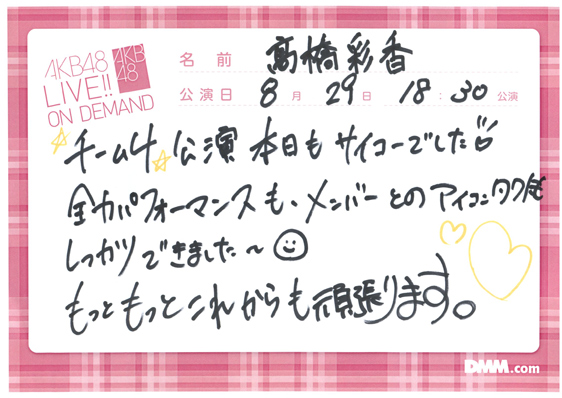 AKB48
LIVE!!
ON DEMAND
AKB
48
名前 髙橋彩香
公演日 8月29日 18:30公演
チーム4公演 本日もサイコーでした
全力パフォーマンスも、メンバーとのアイコンタクトも
しっかりできました〜
もっともっとこれからも頑張ります。
DMM.com